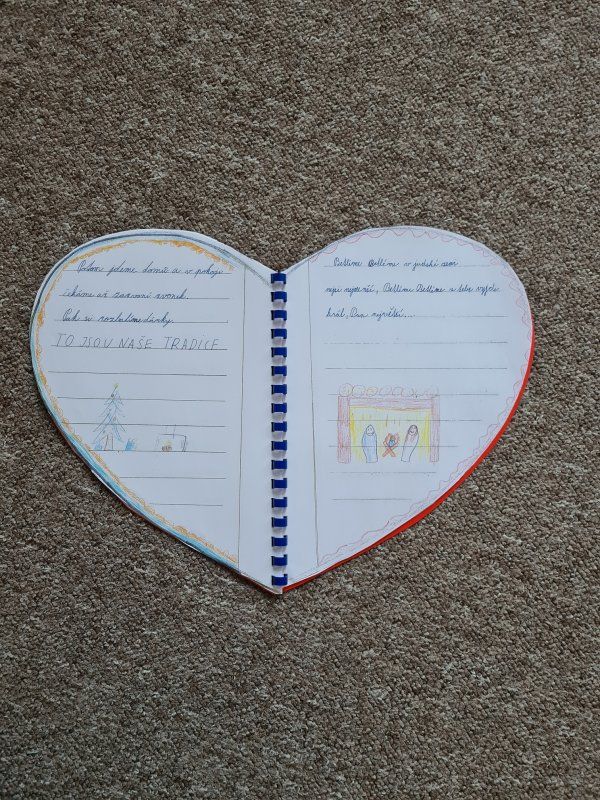 Potom jdeme domů a v pokoji
čekáme až zazvoní zvonek.
Pak si rozbalíme dárky.
TO JSOU NAŠE TRADICE
Betléme Betléme v judské zemi
nejsi nejmenší, Betléme Betléme z tebe vyjde
král, Pán největší...